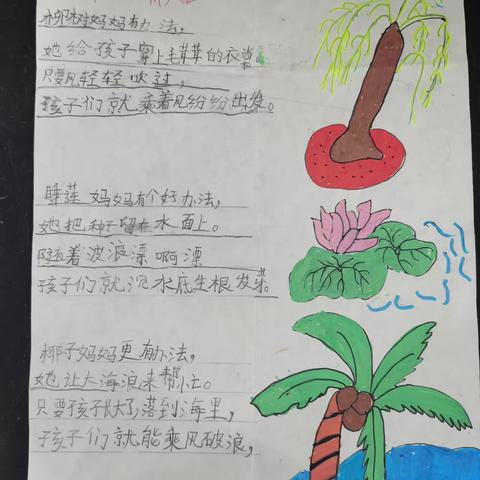 柳树妈妈有办法，
她给孩子穿上毛茸茸的衣裳。
只要风轻轻吹过，
孩子们就乘着风纷纷出发。
睡莲妈妈有个好办法，
她把种子留在水面上。
随着波浪漂啊漂
孩子们就沉水底生根发芽。
椰子妈妈更有办法，
她让大海浪来帮忙。
只要孩子长大了，落到海里，
孩子们就能乘风破浪，